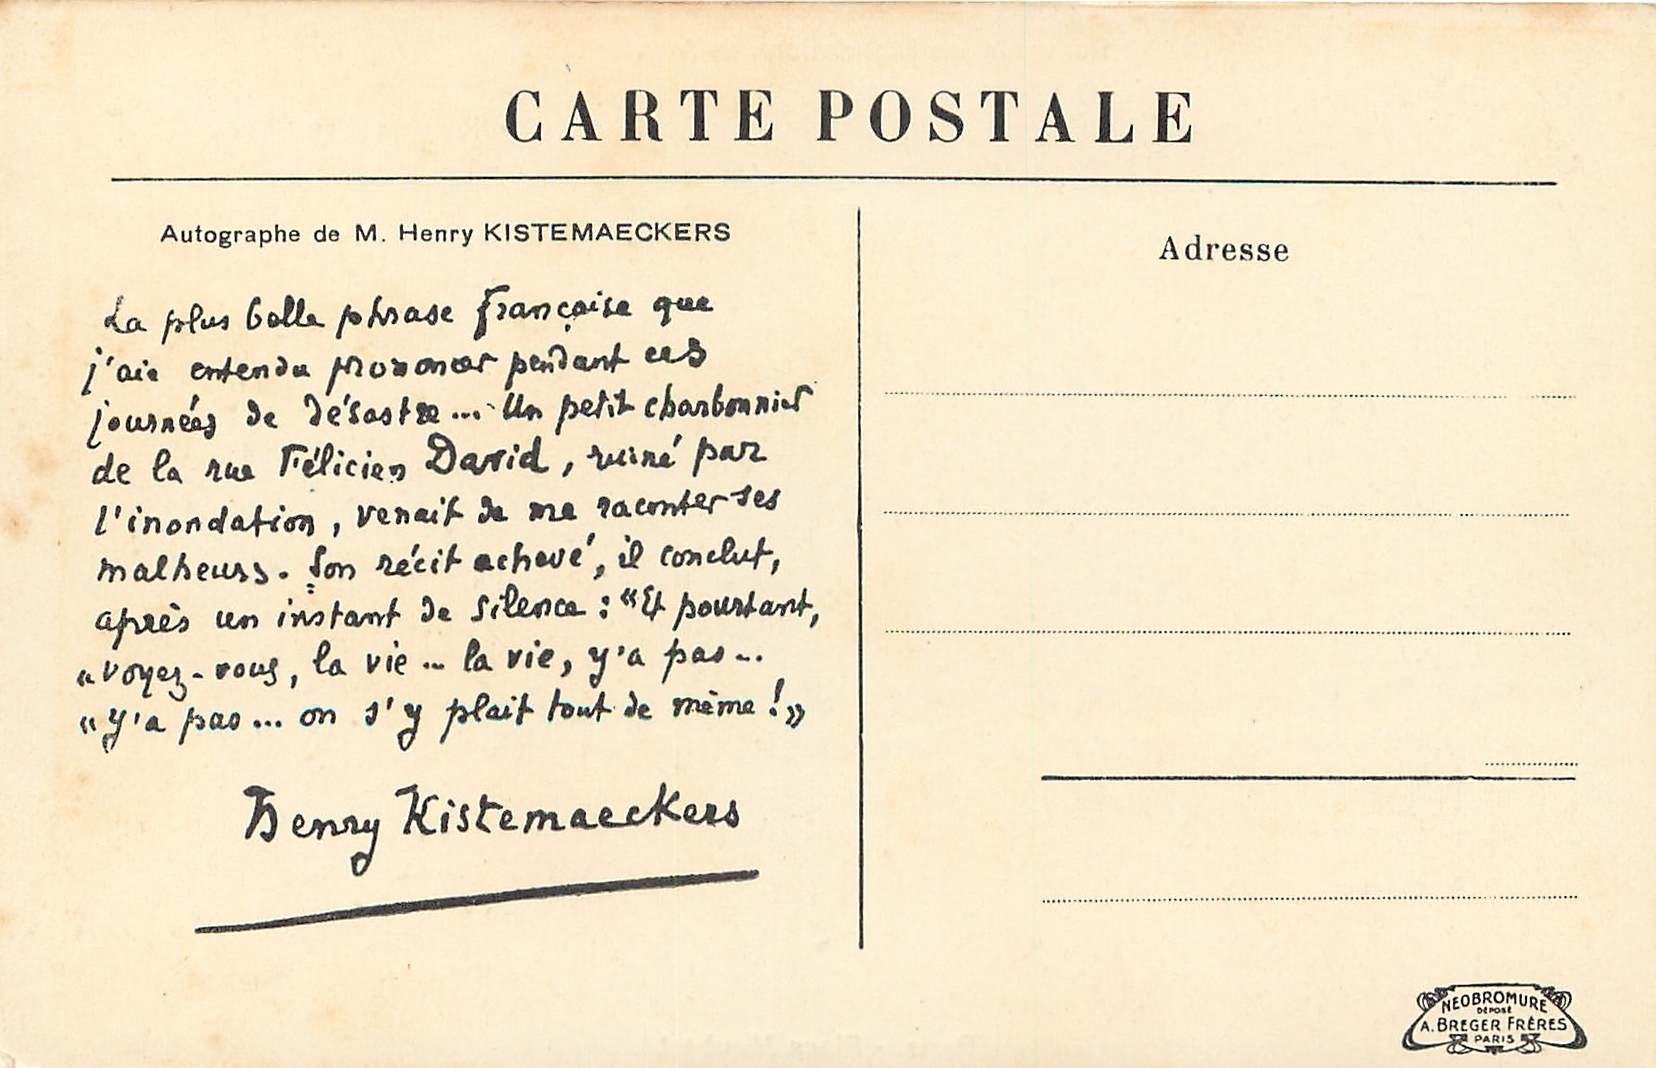 CARTE POSTALE
Autographe de M. Henry KISTEMAECKERS
La plus belle phrase française que
j'aie entendu prononcer pendant ces
journées de désastre... Un petit charbonnier
de la rue Félicien David, ruiné par
l'inondation, venait de me raconter ses
malheurs. Son récit achevé, il conclut,
après un instant de silence : "Et pourtant,
"voyez-vous, la vie... la vie, y'a pas...
"y'a pas... on s'y plait tout de même !"
Henry Kistemaeckers
Adresse
NEOBROMURE
DÉPOSÉ
A. BREGER FRÈRES
PARIS